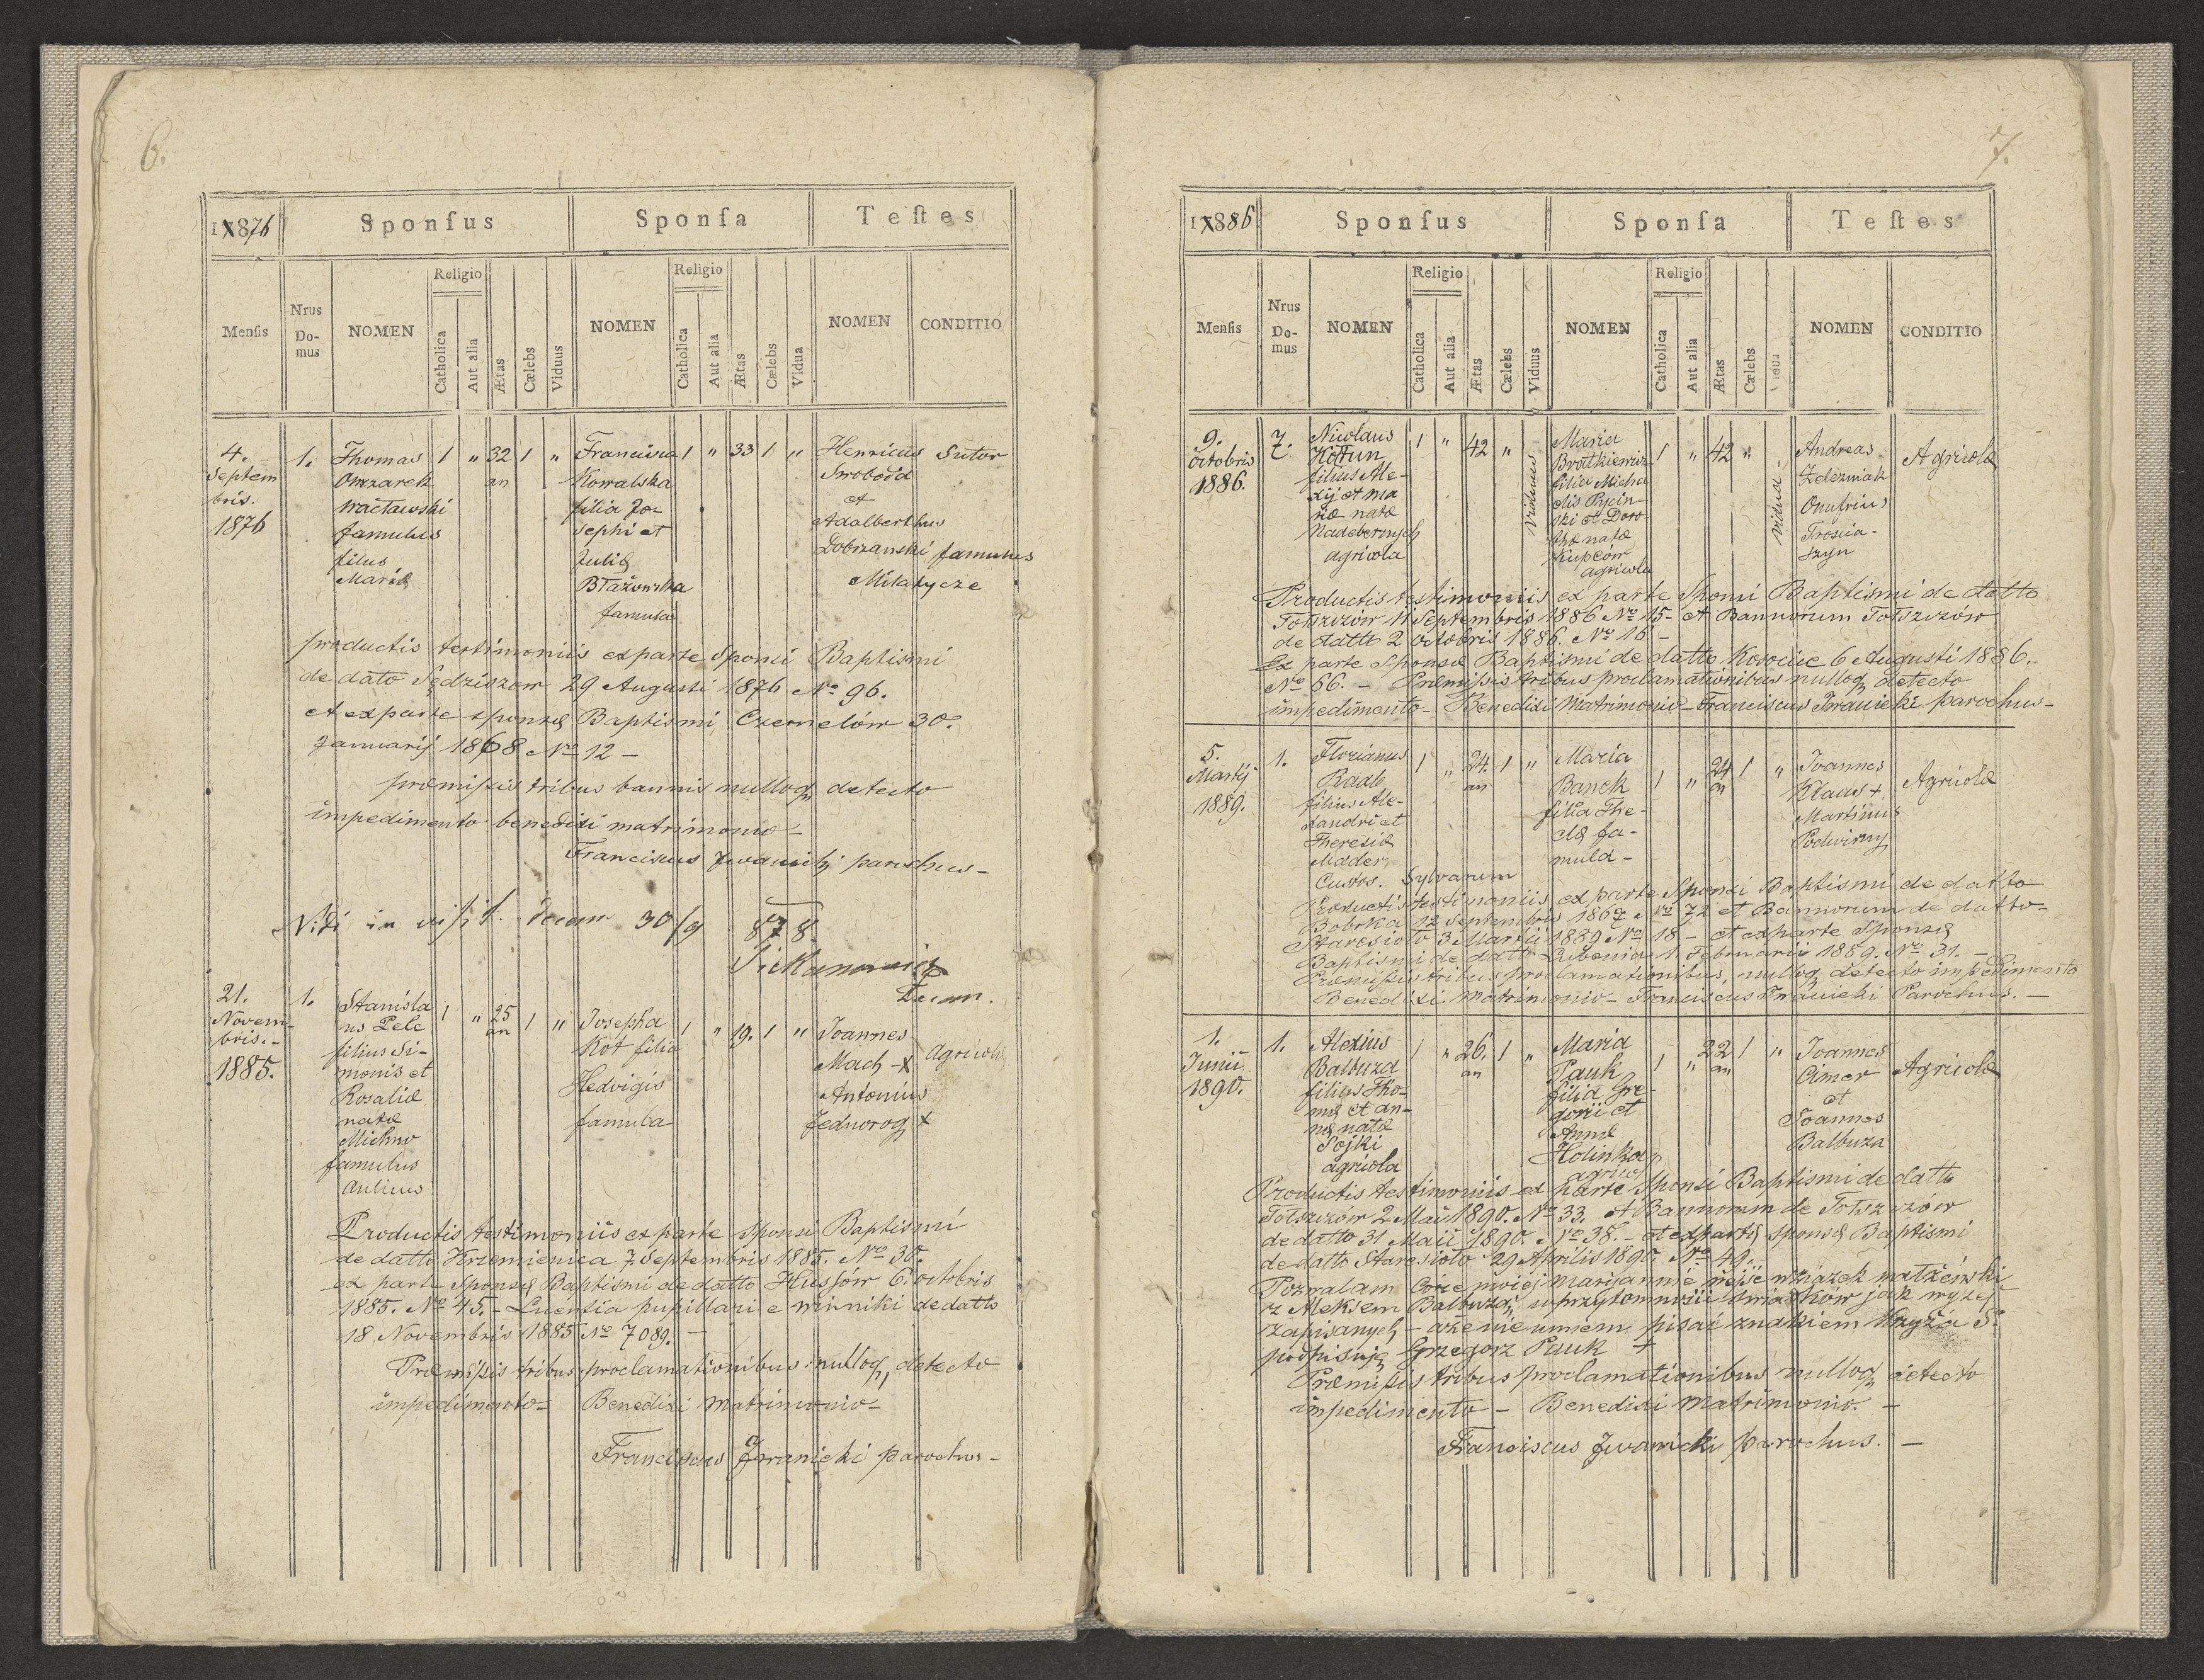 6.
1X876
Sponſus
Sponſa
Teſtes
Menſis
Nrus Domus
NOMEN
Religio
Catholica
Aut alia
Ætas
Cælebs
Viduus
NOMEN
Religio
Catholica
Aut alia
Ætas
Cælebs
Vidua
NOMEN
CONDITIO
4. Septem
bris.
1876
1.
Thomas
Owczarek
Wacławski
famulus
filius
Mariæ
1 " 32 an 1 "
Francisca
Kowalska
filia Jo-
sephi et
Juliæ
Błażowska
famula
1 " 33 1 "
Henricus
Swoboda
et
Adalberthus
Dobrzanski
Sutor
famulus
Mikatycze
productis testimoniis ex parte sponsi Baptismi
de dato Sędziszow 29 Augusti 1876 No 96.
et ex parte sponsæ Baptismi, Czernelów 30.
Januarij 1868 No 12 -
præmissis tribus bannis nulloq detecto
impedimento benedixi matrimonio -
Franciscus Iwanicki parochus -
Vidi in visit. decan 30/9 878
Decan.
21.
Novem-
bris. -
1885.
1.
Stanisla
us Pelc
filius Si-
monis et
Rosaliæ
natæ
Michno
famulus
aulicus
1 " 25 an 1 "
Josepha
Kot filia
Hedvigis
famula
1 " 19. 1 "
Joannes
Mach - X
Antonius
Jednorog X
Agricolæ
Productis testimoniis ex parte Sponsi Baptismi
de datto Krzemienica 7 Septembris 1885. No 30.
ex parte Sponsæ Baptismi de datto Hussów 6. octobris
1885. No 45. - Licentia pupillari e Winniki de datto
18 Novembris 1885 No 7089. -
Præmissis tribus proclamationibus nulloq, detecto
impedimento - Benedixi Matrimonio -
Franciscus Iwanicki parochus -
7.
1X886
Sponſus
Sponſa
Teſtes
Menſis
Nrus Domus
NOMEN
Religio
Catholica
Aut alia
Ætas
Cælebs
Viduus
NOMEN
Religio
Catholica
Aut alia
Ætas
Cælebs
NOMEN
CONDITIO
9.
octobris
1886.
7.
Nicolaus
Kołtun
filius Ale-
xij et Ma
riæ natæ
Nadebernych
agricola
1 " 42 " Viduus
Maria
Bratkiewicz
filia Micha
elis Rycin-
ski et Doro
theæ natæ
Kupców
agricola
1 " 42 " Vidua -
Andreas
Zelezniak
Onufrius
Troscia-
szyn
Agricolæ
Productis testimoniis ex parte Sponsi Baptismi de datto
Tołszczów 11 Septembris 1886 No 15 - et Bannorum Tołszczów
de datto 2 octobris 1886. No 16 -
Ex parte Sponsæ Baptismi de datto Kosocice 6 Augusti 1886.
No 66. - Præmissis tribus proclamationibus nulloq, detecto
impedimento - Benedixi Matrimonio - Franciscus Iwanicki parochus -
5.
Martij
1889.
1.
Florianus
Raab
filius Ale-
xandri et
Theresiæ
Mader
Custos. Sylvarum
1 " 24. an 1 "
Maria
Banek
filia The-
clæ fa-
mula -
1 " 24 an 1 "
Joannes
Klaus +
Martinus
Podwirny
Agricolæ
Productis testimoniis ex parte Sponsi Baptismi de datto
Bobrka 12 Septembris 1867 No 72 et Bannorum de datto -
Staresioło 3 Martii 1889 No 18 - et ex parte Sponsæ
Baptismi de datto Lubenia 1 Februarii 1889. No 31. -
Præmissis tribus proclamationibus, nulloq, detecto impedimento
Benedixi Matrimonio - Franciscus Iwanicki Parochus. -
1.
Junii
1890.
1.
Alexius
Balbuza
filius Tho-
mæ et An-
næ natæ
Sojki
agricola
1 " 26. an 1 "
Maria
Pauk
filia Gre-
gorii et
Annæ
Holinka
agricol
1 " 22 an 1 "
Joannes
Cimer
et
Joannes
Balbuza
Agricolæ
Productis testimoniis ex parte Sponsi Baptismi de datto
Tołszczów 2 Maii 1890. No 33. et Bannorum de Tołszczów
de datto 31 Maii 1890. No 38. - et ex parte sponsæ Baptismi
de datto Staresioło 29 Aprilis 1890. No 49. -
Pozwalam Córce mojéj Maryannie wejść w związek małżeński
z Aleksem Balbuzą, w przytomności świadków jak wyżej
zapisanych - a że nie umiem pisać znakiem Krzyża S.
podpisuję Grzegorz Pauk +
Præmissis tribus proclamationibus nulloq detecto
impedimento - Benedixi Matrimonio. -
Franciscus Iwanicki parochus. -